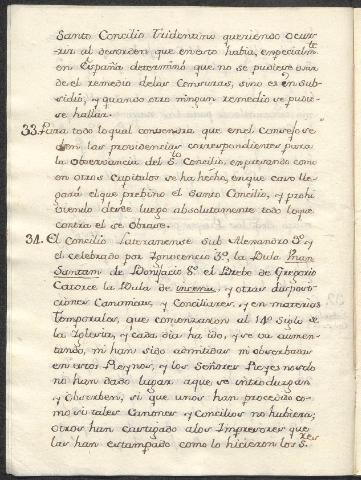 Santo Concilio Tridentino queriendo ocur-
rir al desorden que en esto habia, especialmte.
en España determinó que no se pudiese usar
de el remedio delas Censuras, sino es en sub-
sidio, y quando otro ningun remedio se pudie-
se hallar.
33. Para todo loqual convendra que enel Consejo se
den las providencias correspondientes para
la observancia del Sto. Concilio, expresando como
en otros Capitulos se ha hecho, enque caso lle-
gará el que prebino el Santo Concilio, y prohi-
viendo desde luego absolutamente todo loque
contra el se obrare.
34. El Concilio Lateranense sub Alexandro 3º. y
el celebrado por Ynnocencio 3º. la Bula Unam
Santam de Bonifacio 8º. el Brebe de Gregorio
Catorce la Bula de incena, y otras disposi-
ciones Canonicas, y Conciliares, y en materias
temporales, que comenzaron al 14º. Siglo de
la Iglesia, y cada dia ha ido, y se va aumen-
tando, ni han sido admitidas ni observadas
en estos Reynos, y los Señores Reyes no solo
no han dado lugar aque se introduzcan
y observen, si que unos han procedido co-
mo si tales Canones y Concilios no hubiera;
otros han castigado alos Impresores que
las han estampado como lo hicieron los S.res